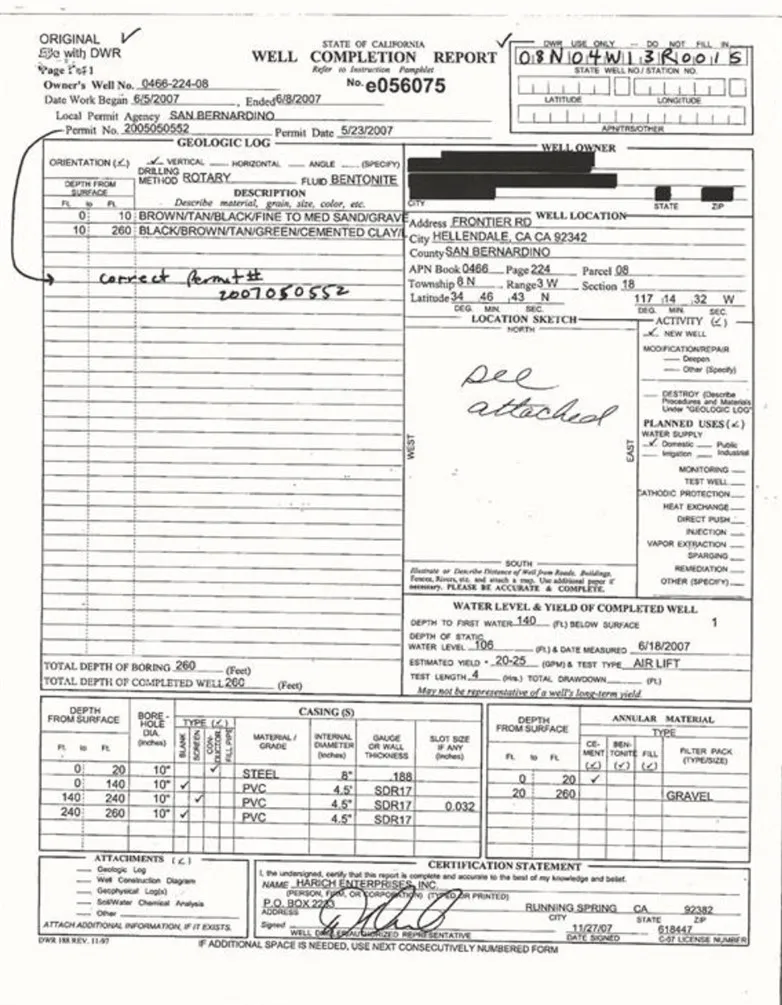 ORIGINAL
File with DWR
STATE OF CALIFORNIA
WELL COMPLETION REPORT
Refer to Instruction Pamphlet
DWR USE ONLY — DO NOT FILL IN
08N04W13R001S
STATE WELL NO./STATION NO.
LATITUDE LONGITUDE
APN/TRS/OTHER
Page 1 of 1
Owner's Well No. 0466-224-08
No. e056075
Date Work Began 6/5/2007, Ended 6/8/2007
Local Permit Agency SAN BERNARDINO
Permit No. 2005050552 Permit Date 5/23/2007
GEOLOGIC LOG
ORIENTATION (✓) ✓ VERTICAL HORIZONTAL ANGLE (SPECIFY)
DRILLING METHOD ROTARY FLUID BENTONITE
DEPTH FROM SURFACE
Ft. to Ft.
DESCRIPTION
Describe material, grain, size, color, etc.
0 10 BROWN/TAN/BLACK/FINE TO MED SAND/GRAVE
10 260 BLACK/BROWN/TAN/GREEN/CEMENTED CLAY/
correct permit #
2007050552
TOTAL DEPTH OF BORING 260 (Feet)
TOTAL DEPTH OF COMPLETED WELL 260 (Feet)
WELL OWNER
CITY STATE ZIP
WELL LOCATION
Address FRONTIER RD
City HELLENDALE, CA CA 92342
County SAN BERNARDINO
APN Book 0466 Page 224 Parcel 08
Township 8 N Range 3 W Section 18
Latitude 34 46 43 N 117 14 32 W
DEG. MIN. SEC. DEG. MIN. SEC.
LOCATION SKETCH
NORTH
see
attached
WEST
EAST
SOUTH
Illustrate or Describe Distance of Well from Roads, Buildings,
Fences, Rivers, etc. and attach a map. Use additional paper if
necessary. PLEASE BE ACCURATE & COMPLETE.
ACTIVITY (✓)
✓ NEW WELL
MODIFICATION/REPAIR
Deepen
Other (Specify)
DESTROY (Describe
Procedures and Materials
Under "GEOLOGIC LOG"
PLANNED USES (✓)
WATER SUPPLY
✓ Domestic Public
Irrigation Industrial
MONITORING
TEST WELL
CATHODIC PROTECTION
HEAT EXCHANGE
DIRECT PUSH
INJECTION
VAPOR EXTRACTION
SPARGING
REMEDIATION
OTHER (SPECIFY)
WATER LEVEL & YIELD OF COMPLETED WELL
DEPTH TO FIRST WATER 140 (Ft.) BELOW SURFACE 1
DEPTH OF STATIC
WATER LEVEL 106 (Ft.) & DATE MEASURED 6/18/2007
ESTIMATED YIELD * 20-25 (GPM) & TEST TYPE AIR LIFT
TEST LENGTH 4 (Hrs.) TOTAL DRAWDOWN (Ft.)
May not be representative of a well's long-term yield.
DEPTH FROM SURFACE
Ft. to Ft.
BORE-HOLE DIA. (Inches)
CASING (S)
TYPE (✓)
BLANK SCREEN CON-DUCTOR FILL PIPE
MATERIAL / GRADE
INTERNAL DIAMETER (Inches)
GAUGE OR WALL THICKNESS
SLOT SIZE IF ANY (Inches)
0 20 10" ✓ STEEL 8" .188
0 140 10" ✓ PVC 4.5' SDR17
140 240 10" ✓ PVC 4.5" SDR17 0.032
240 260 10" ✓ PVC 4.5" SDR17
DEPTH FROM SURFACE
Ft. to Ft.
ANNULAR MATERIAL
TYPE
CE-MENT (✓) BEN-TONITE (✓) FILL (✓) FILTER PACK (TYPE/SIZE)
0 20 ✓
20 260 GRAVEL
ATTACHMENTS (✓)
Geologic Log
Well Construction Diagram
Geophysical Log(s)
Soil/Water Chemical Analysis
Other
ATTACH ADDITIONAL INFORMATION, IF IT EXISTS.
CERTIFICATION STATEMENT
I, the undersigned, certify that this report is complete and accurate to the best of my knowledge and belief.
NAME HARICH ENTERPRISES, INC.
(PERSON, FIRM, OR CORPORATION) (TYPED OR PRINTED)
P.O. BOX RUNNING SPRING CA 92382
ADDRESS CITY STATE ZIP
Signed 11/27/07 618447
WELL DRILLER/AUTHORIZED REPRESENTATIVE DATE SIGNED C-57 LICENSE NUMBER
DWR 188 REV. 11-97
IF ADDITIONAL SPACE IS NEEDED, USE NEXT CONSECUTIVELY NUMBERED FORM